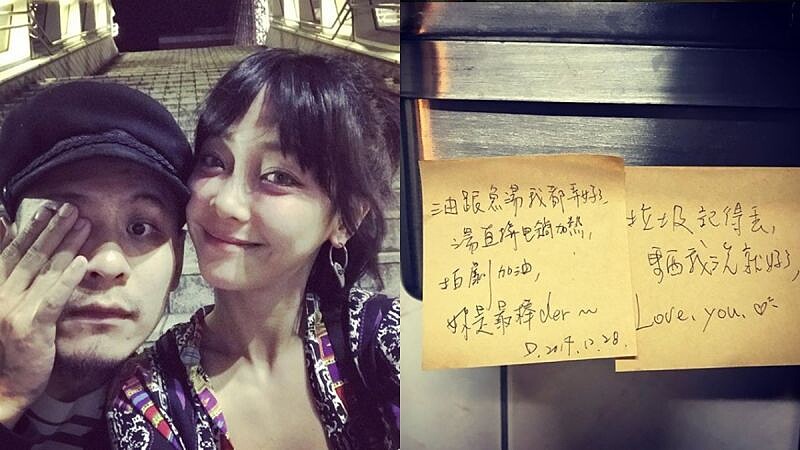 油跟魚湯我都弄好了
湯直接電鍋加熱,
拍劇加油,
妳是最棒der~
D.2014.12.28.
垃圾記得丟,
我洗就好,
Love. you. ♡